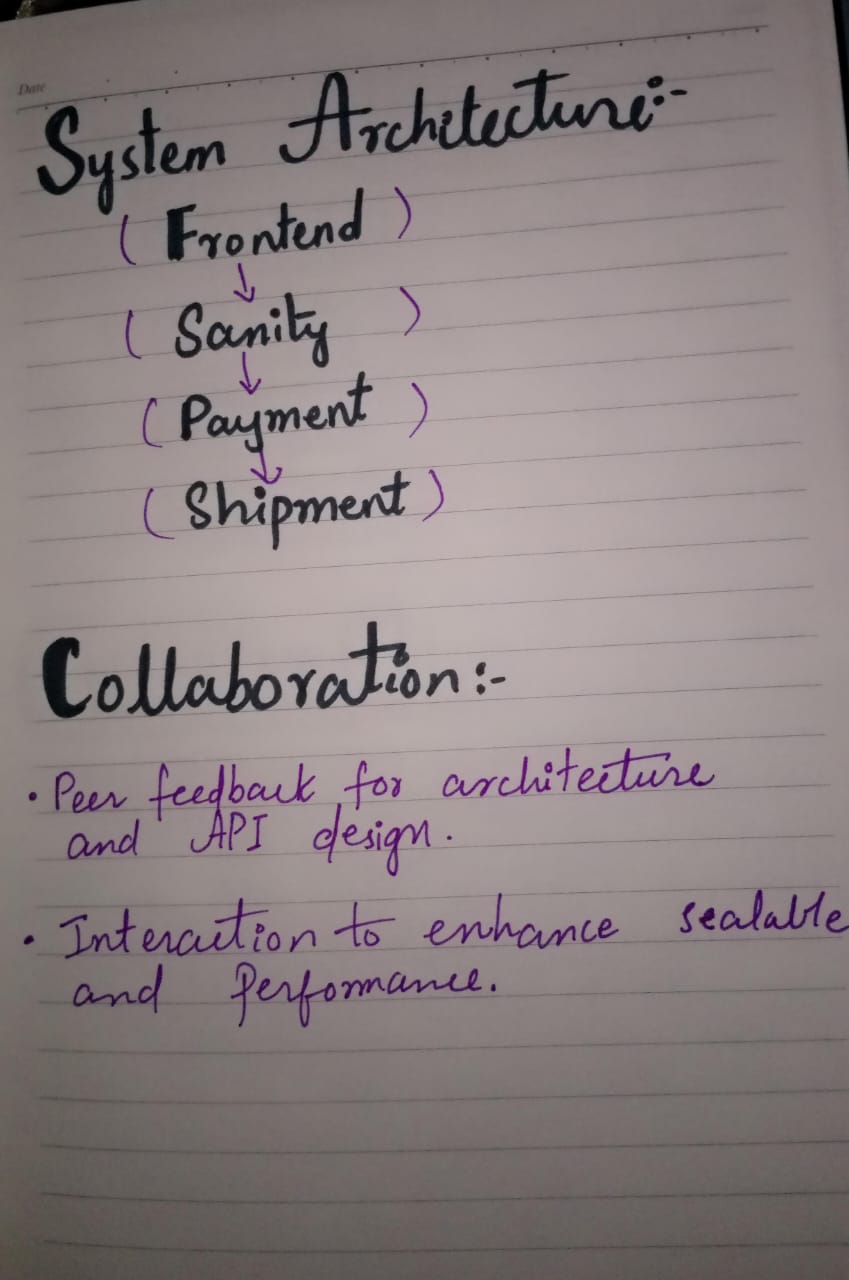 Date
System Architecture:-
( Frontend )
↓
( Sanity )
↓
( Payment )
↓
( Shipment )
Collaboration:-
• Peer feedback for architecture
and API design.
• Interaction to enhance scalable
and Performance.